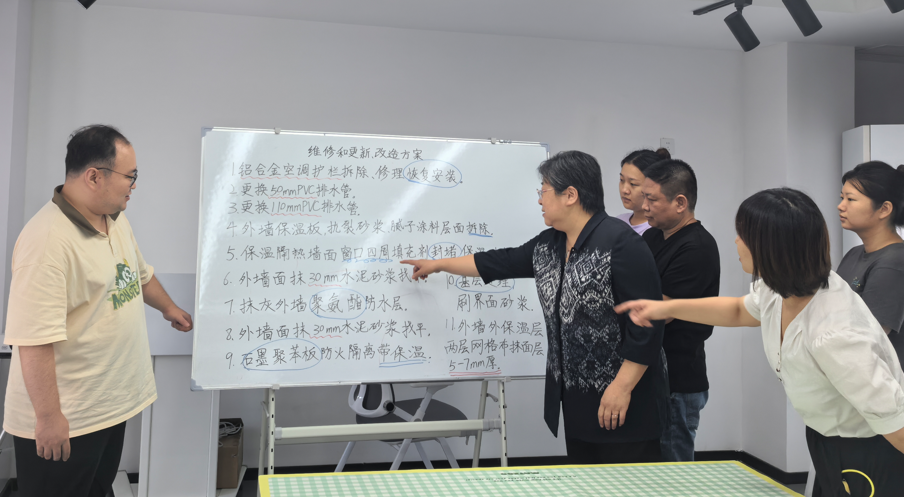 维修和更新、改造方案
1.铝合金空调护栏拆除、修理恢复安装。
2.更换50mmPVC排水管。
3.更换110mmPVC排水管
4.外墙保温板、抗裂砂浆、腻子涂料层面拆除
5.保温隔热墙面窗口四周填充剂封堵保温
6.外墙面抹20mm水泥砂浆找
7.抹灰外墙聚氨酯防水层。
8.外墙面抹30mm水泥砂浆找平.
9.石墨聚苯板防火隔离带保温.
10.基层
刷界面砂浆.
11.外墙外保温层
两层网格布抹面层
5-7mm厚